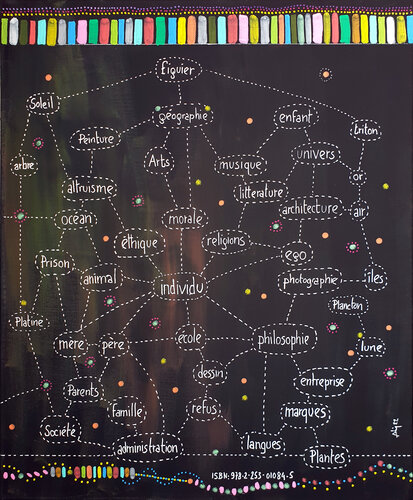 figuier
Soleil
géographie
enfant
triton
Peinture
univers
arbre
Arts
musique
or
altruisme
littérature
océan
morale
architecture
air
éthique
religions
ego
Prison
animal
individu
photographie
îles
Plancton
Platine
mère
père
école
philosophie
lune
dessin
entreprise
Parents
famille
refus
marques
Société
administration
langues
Plantes
ISBN: 978-2-253-01084-5